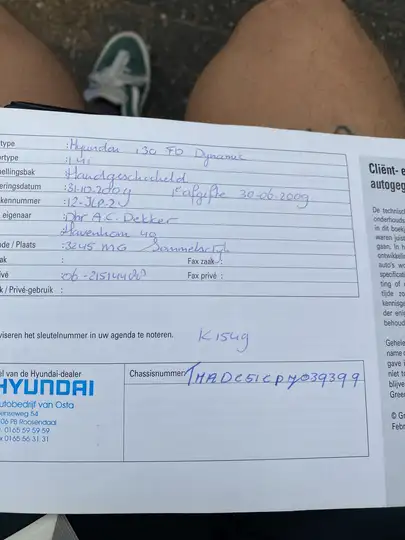 type : Hyundai i30 FD Dynamic
rtype : 1.4i
nellingsbak : Handgeschakeld
eringsdatum : 31.10.2009 1e afgifte 30-06-2009
kennummer
eigenaar : Dhr A.C. Dekker
Havenhem 49
de / Plaats : 3245 MG Sommelsdijk
ak : Fax zaak :
ivé : 06-215144 Fax privé :
k / Privé-gebruik :
viseren het sleutelnummer in uw agenda te noteren. K1549
el van de Hyundai-dealer
HYUNDAI
utobedrijf van Osta
enseweg 54
06 PB Roosendaal
. 0165 59 59 59
x 0165 56 31 31
Chassisnummer: TMADC51CPMJ039399
Cliënt- e
autogeg
De technisc
onderhouds
in dit boekj
waren juist
gaan. In h
ontwikkelin
auto's wo
specificat
ting of
tijde zo
kennisge
der enig
behoud
Gehele
name
gave i
niet to
blijve
Green
© Gr
Febr